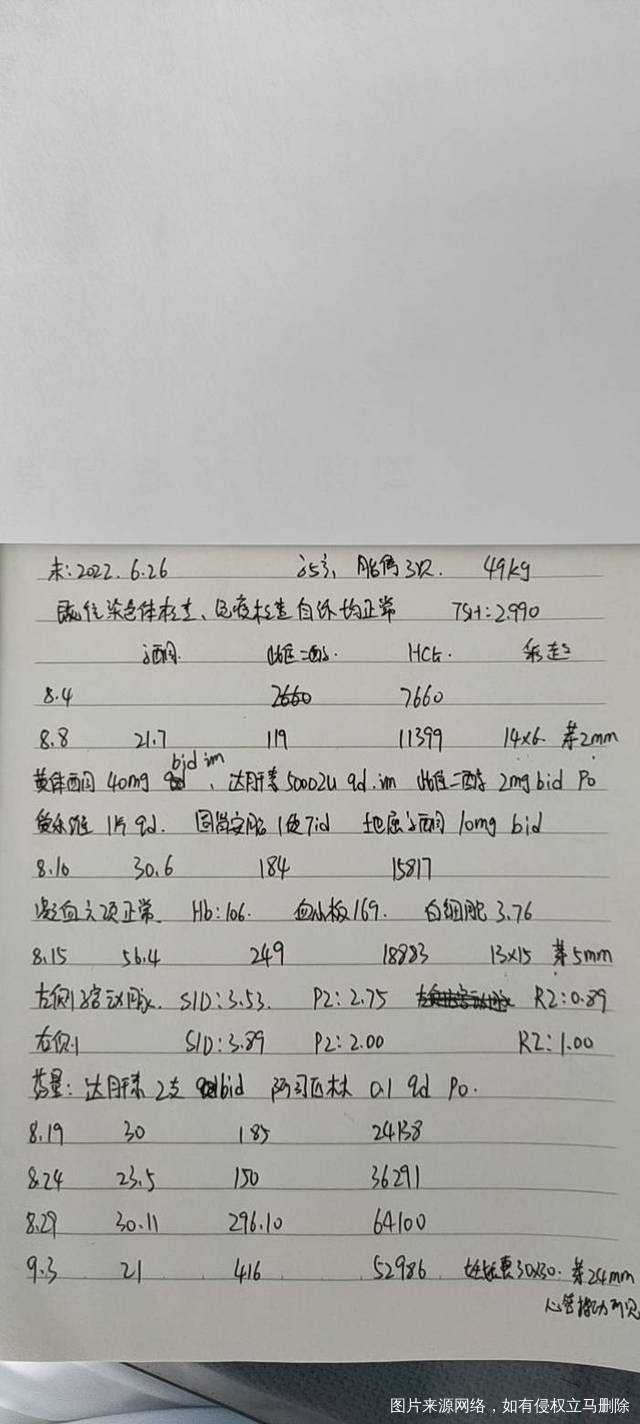 末:2022.6.26 35岁, 胎停3次. 49kg
既往染色体检查、免疫检查自诉均正常 TSH:2.990
孕酮. 雌二醇. HCG. 彩超
8.4 7660
8.8 21.7 119 11399 14×6. 芽2mm
黄体酮 40mg bid im、达肝素 5000Iu qd.im 雌二醇 2mg bid Po
爱乐维 1片 qd. 固肾安胎 1袋 Tid 地屈孕酮 10mg bid
8.10 30.6 184 15817
凝血六项正常. Hb:106. 血小板169. 白细胞 3.76
8.15 56.4 249 18883 13×15 芽5mm
左侧子宫动脉. S/D:3.53. PI:2.75 RI:0.89
右侧 S/D:3.89 PI:2.00 RI:1.00
药量: 达肝素 2支 bid 阿司匹林 0.1 qd Po.
8.19 30 185 24138
8.24 23.5 150 36291
8.29 30.11 296.10 64100
9.3 21 416 52986 妊娠囊30×30. 芽24mm
心管搏动可见
图片来源网络，如有侵权立马删除